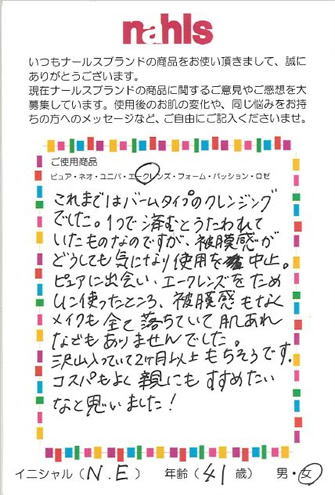 nahls
いつもナールスブランドの商品をお使い頂きまして、誠に
ありがとうございます。
現在ナールスブランドの商品に関するご意見やご感想を大
募集しています。使用後のお肌の変化や、同じ悩みをお持
ちの方へのメッセージなど、ご自由にご記入くださいませ。
ご使用商品
ピュア・ネオ・ユニバ・エークレンズ・フォーム・パッション・ロゼ
これまではバームタイプのクレンジング
でした。1つで済むとうたわれて
いたものなのですが、被膜感が
どうしても気になり使用を中止。
ピュアに出会い、エークレンズをため
しに使ったところ、被膜感もなく
メイクも全て落ちていて肌あれ
などもありませんでした。
沢山入っていて2ヶ月以上もちそうです。
コスパもよく親にもすすめたい
なと思いました!
イニシャル(N.E) 年齢(41歳) 男・女